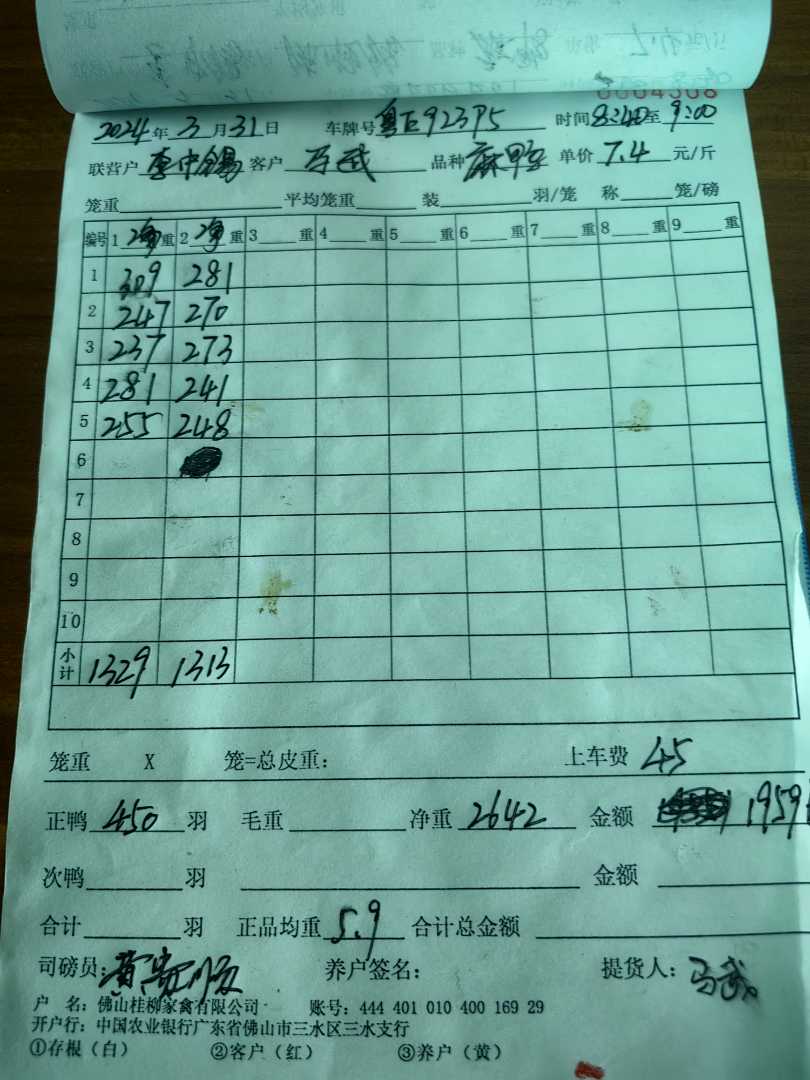 0004508
2024年3月31日 车牌号 粤E923P5 时间8:40至9:00
联营户 李中锡 客户 马武 品种 麻鸭 单价 7.4 元/斤
笼重 平均笼重 装 羽/笼 称 笼/磅
编号 1 净重 2 净重 3 重 4 重 5 重 6 重 7 重 8 重 9 重
1 309 281
2 247 270
3 237 273
4 281 241
5 255 248
6
7
8
9
10
小计 1329 1313
笼重 X 笼=总皮重: 上车费 45
正鸭 450 羽 毛重 净重 2642 金额 1959
次鸭 羽 金额
合计 羽 正品均重 5.9 合计总金额
司磅员: 黄 养户签名: 提货人: 马武
户 名: 佛山桂柳家禽有限公司 账号: 444 401 010 400 169 29
开户行: 中国农业银行广东省佛山市三水区三水支行
①存根(白) ②客户(红) ③养户(黄)